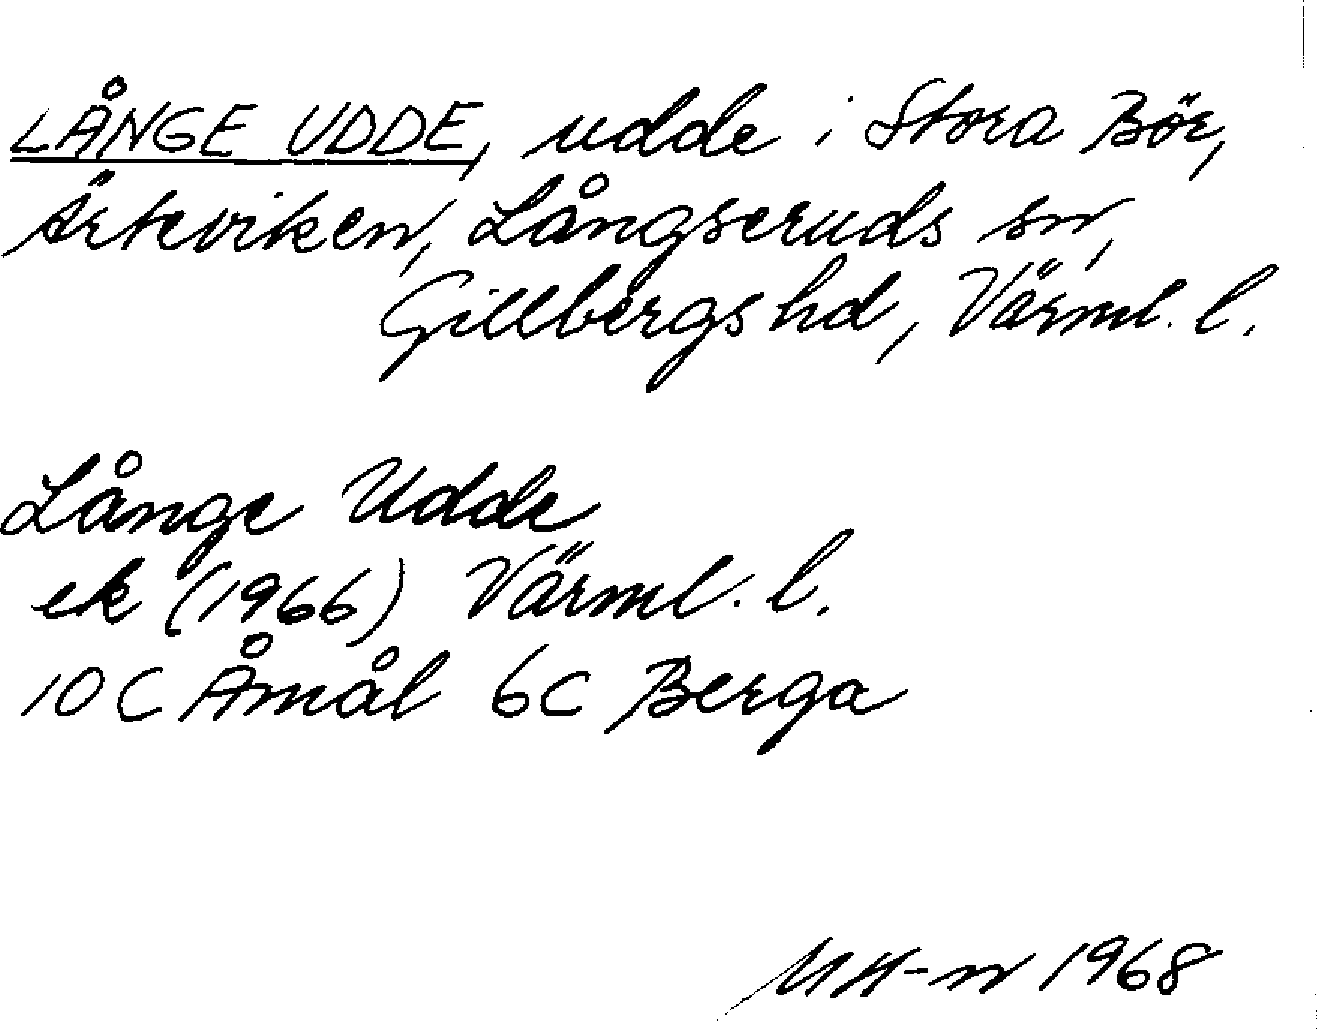 LÅNGE UDDE, udde i Stora Bör,
Ärteviken, Långseruds sn,
Gillbergs hd, Värml. l.
Långe Udde
ek (1966) Värml. l.
10 C Åmål 6c Berga
MH-n 1968